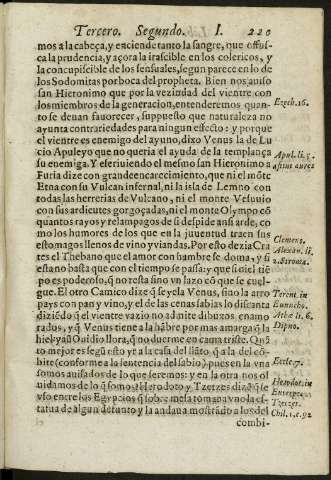 Tercero. Segundo. I. 220
mos a la cabeça, y enciende tanto la sangre, que offus-
ca la prudencia, y açora la irascible en los colericos, y
la concupiscible de los sensuales, segun parece en lo de
los Sodomitas por boca del propheta. Bien nos auiso
san Hieronimo que por la vezindad del vientre con
los miembros de la generacion, entenderemos quan-
to se deuan fauorescer, supuesto que naturaleza no
ayunta contrariedades para ningun effecto: y porque
el vientre es enemigo del ayuno, dixo Venus la de Lu
cio Apuleyo que no queria el ayuda de la templança
su enemiga. Y escriuiendo el mesmo san Hieronimo a
Furia dize con grande encarecimiento, que ni el mōte
Etna con su Vulcan infernal, ni la isla de Lemno con
todas las herrerias de Vulcano, ni el monte Vesuuio
con sus ardientes gorgoçadas, ni el monte Olympo cō
quantos rayos y relampagos de si despide ansi arde, co
mo los humores de los que en la juuentud traen sus
estomagos llenos de vino y viandas. Por esto dezia Cra
tes el Thebano que el amor con hambre se doma, y si
esta no basta que con el tiempo se passa: y que si el tiē
po es poderoso, q̄ no resta sino vn lazo cō que se cuel-
gue. El otro Comico dize q̄ se yela Venus, sino la arro
pays con pan y vino, y el de las cenas sabias lo disfanta
diziēdo q̄ el vientre vazio no admite dibuxos enamo
rados, y q̄ Venus tiene a la hābre por mas amarga q̄ la
hiel: y aū Ouidio llora, q̄ no duerme en cama triste. Quā
to mejor es segū esto yr a la casa del llāto, q̄ a la del cō-
bite (conforme a la sentencia del sabio) pues en la vna
somos auisados de lo que seremos: y en la otra nos ol
uidamos de lo q̄ somos. Herodoto y Tzetzes dizē q̄ se
vso entre los Egypcios q̄ sobre mesa tomaua vno la es
tatua de algun defunto y la andaua mostrādo a los del
combi-
Ezech. 16.
Apul. li. 5.
asini aurei
Clemens.
Alexan. li.
2. Stroma.
Terent. in
Eunucho.
Athe. li. 6.
Dipno.
Eccle. 7.
Herodot. in
Euterpe.
Tzetzes.
Chil. 1. c. 92